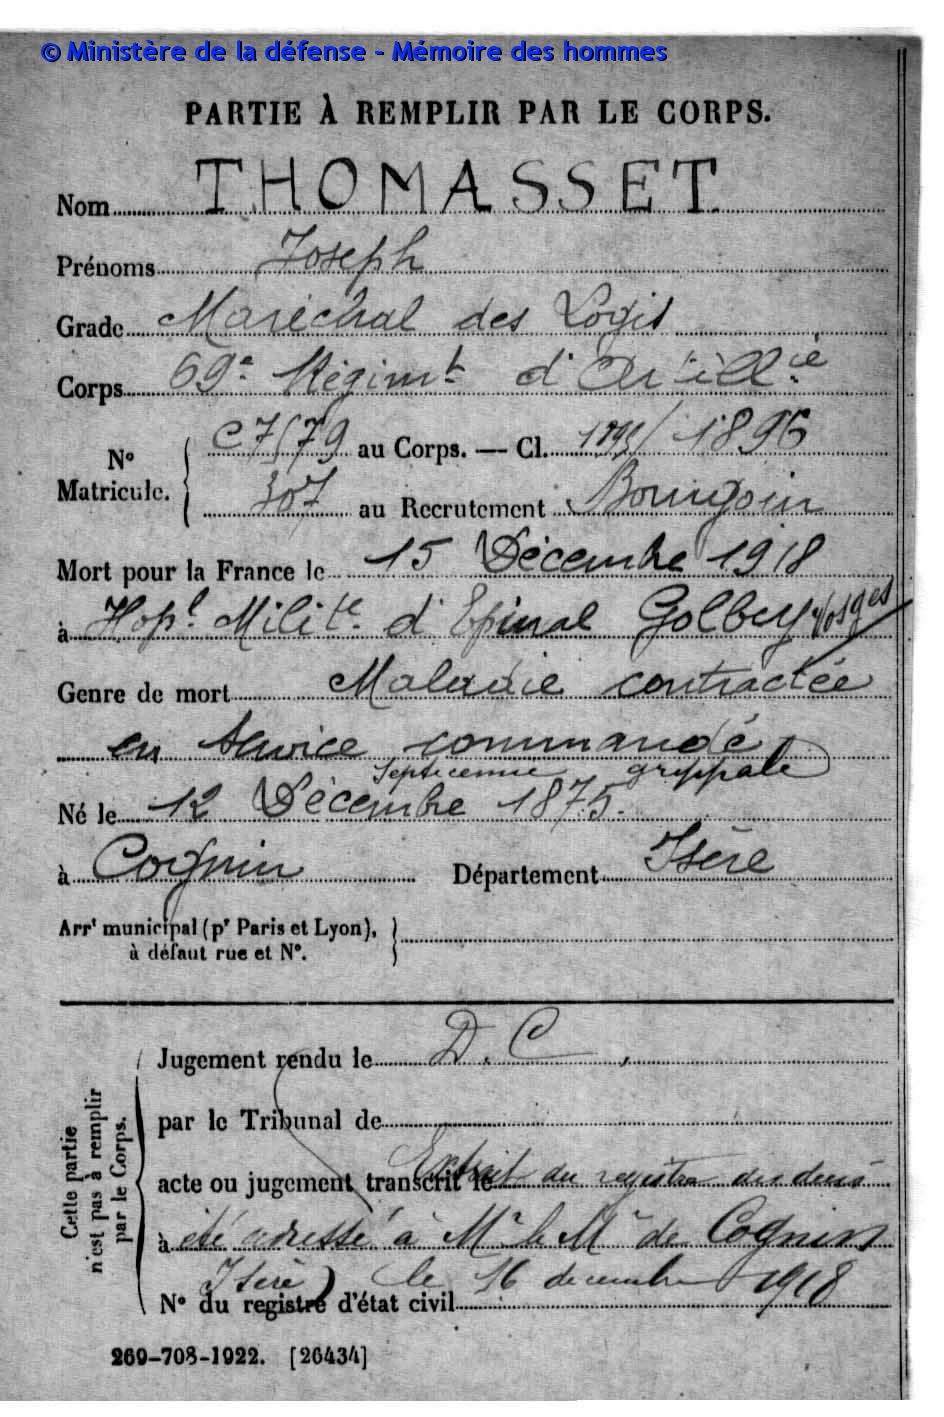 © Ministère de la défense - Mémoire des hommes
PARTIE À REMPLIR PAR LE CORPS.
Nom THOMASSET
Prénoms Joseph
Grade Maréchal des Logis
Corps 69e Régimt d'Artillie
No Matricule. { C7/79 au Corps. — Cl. 1896
307 au Recrutement Bourgoin
Mort pour la France le 15 Décembre 1918
à Hopl Milite d'Epinal Golbey Vosges
Genre de mort Maladie contractée
en service commandé
Septicemie gryppale
Né le 12 Décembre 1875.
à Cognin Département Isère
Arrt municipal (pr Paris et Lyon), }
à défaut rue et No.
Cette partie
n'est pas à remplir
par le Corps.
Jugement rendu le D. C
par le Tribunal de
acte ou jugement transcrit le Extrait du registre des decès
à été adressé à Mr le Mr de Cognin
Isère) le 16 decembre 1918
No du registre d'état civil
269-708-1922. [26434]